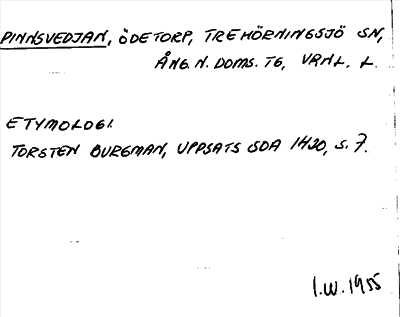 PINNSVEDJAN, ÖDETORP, TREHÖRNINGSJÖ SN,
ÅNG. N. DOMS. TG, VRML. L.
ETYMOLOGI.
TORSTEN BURGMAN, UPPSATS GDA 1420, S. 7.
I.W. 1955